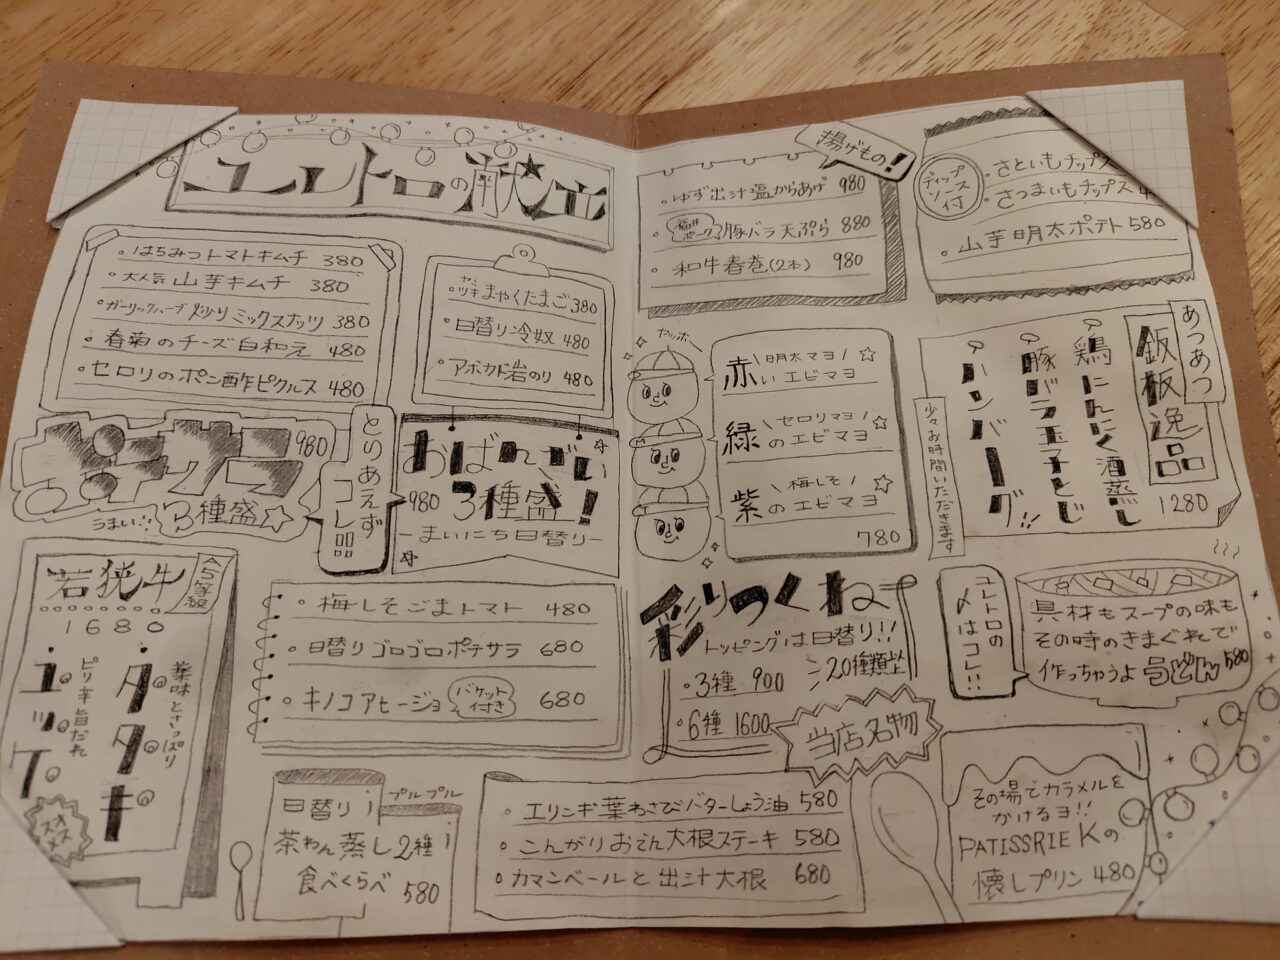 ユレトロの献立
・はちみつトマトキムチ 380
・大人気 山芋キムチ 380
・ガーリックハーブ炒りミックスナッツ 380
・春菊のチーズ白和え 480
・セロリのポン酢ピクルス 480
・ヤミツキまやくたまご380
・日替り冷奴 480
・アボカド岩のり 480
980
うまい!!
3種盛☆
とりあえず
コレ品
おばんざい
980 3種盛!
-まいにち日替り-
若狭牛
A5等級
1680
・タタキ
薬味とさっぱり
・ユッケ
ピリ辛旨だれ
オススメ
・梅しそごまトマト 480
・日替りゴロゴロポテサラ 680
・キノコアヒージョ バケット付き 680
日替り
プルプル
茶わん蒸し2種
食べくらべ 580
・エリンギ葉わさびバターしょう油 580
・こんがりおでん大根ステーキ 580
・カマンベールと出汁大根 680
揚げもの!
・ゆず出汁塩からあげ 980
・福井ポーク 豚バラ天ぷら 880
・和牛春巻(2本) 980
ディップソース付
・さといもチップス
・さつまいもチップス 4
・山芋明太ポテト 580
ヤッホー
赤い 明太マヨ エビマヨ☆
緑の セロリマヨ エビマヨ☆
紫の 梅しそ エビマヨ☆
780
あつあつ
鉄板逸品
1280
・鶏にんにく酒蒸し
・豚バラ玉子とじ
・ハンバーグ!!
少々お時間いただきます
彩りつくね
トッピングは日替り!!
・3種 900
20種類以上
・6種 1600
当店名物
ユレトロの
〆はコレ!!
具材もスープの味も
その時のきまぐれで
作っちゃうよ うどん 580
その場でカラメルを
かけるヨ!!
PATISSRIE Kの
懐しプリン 480